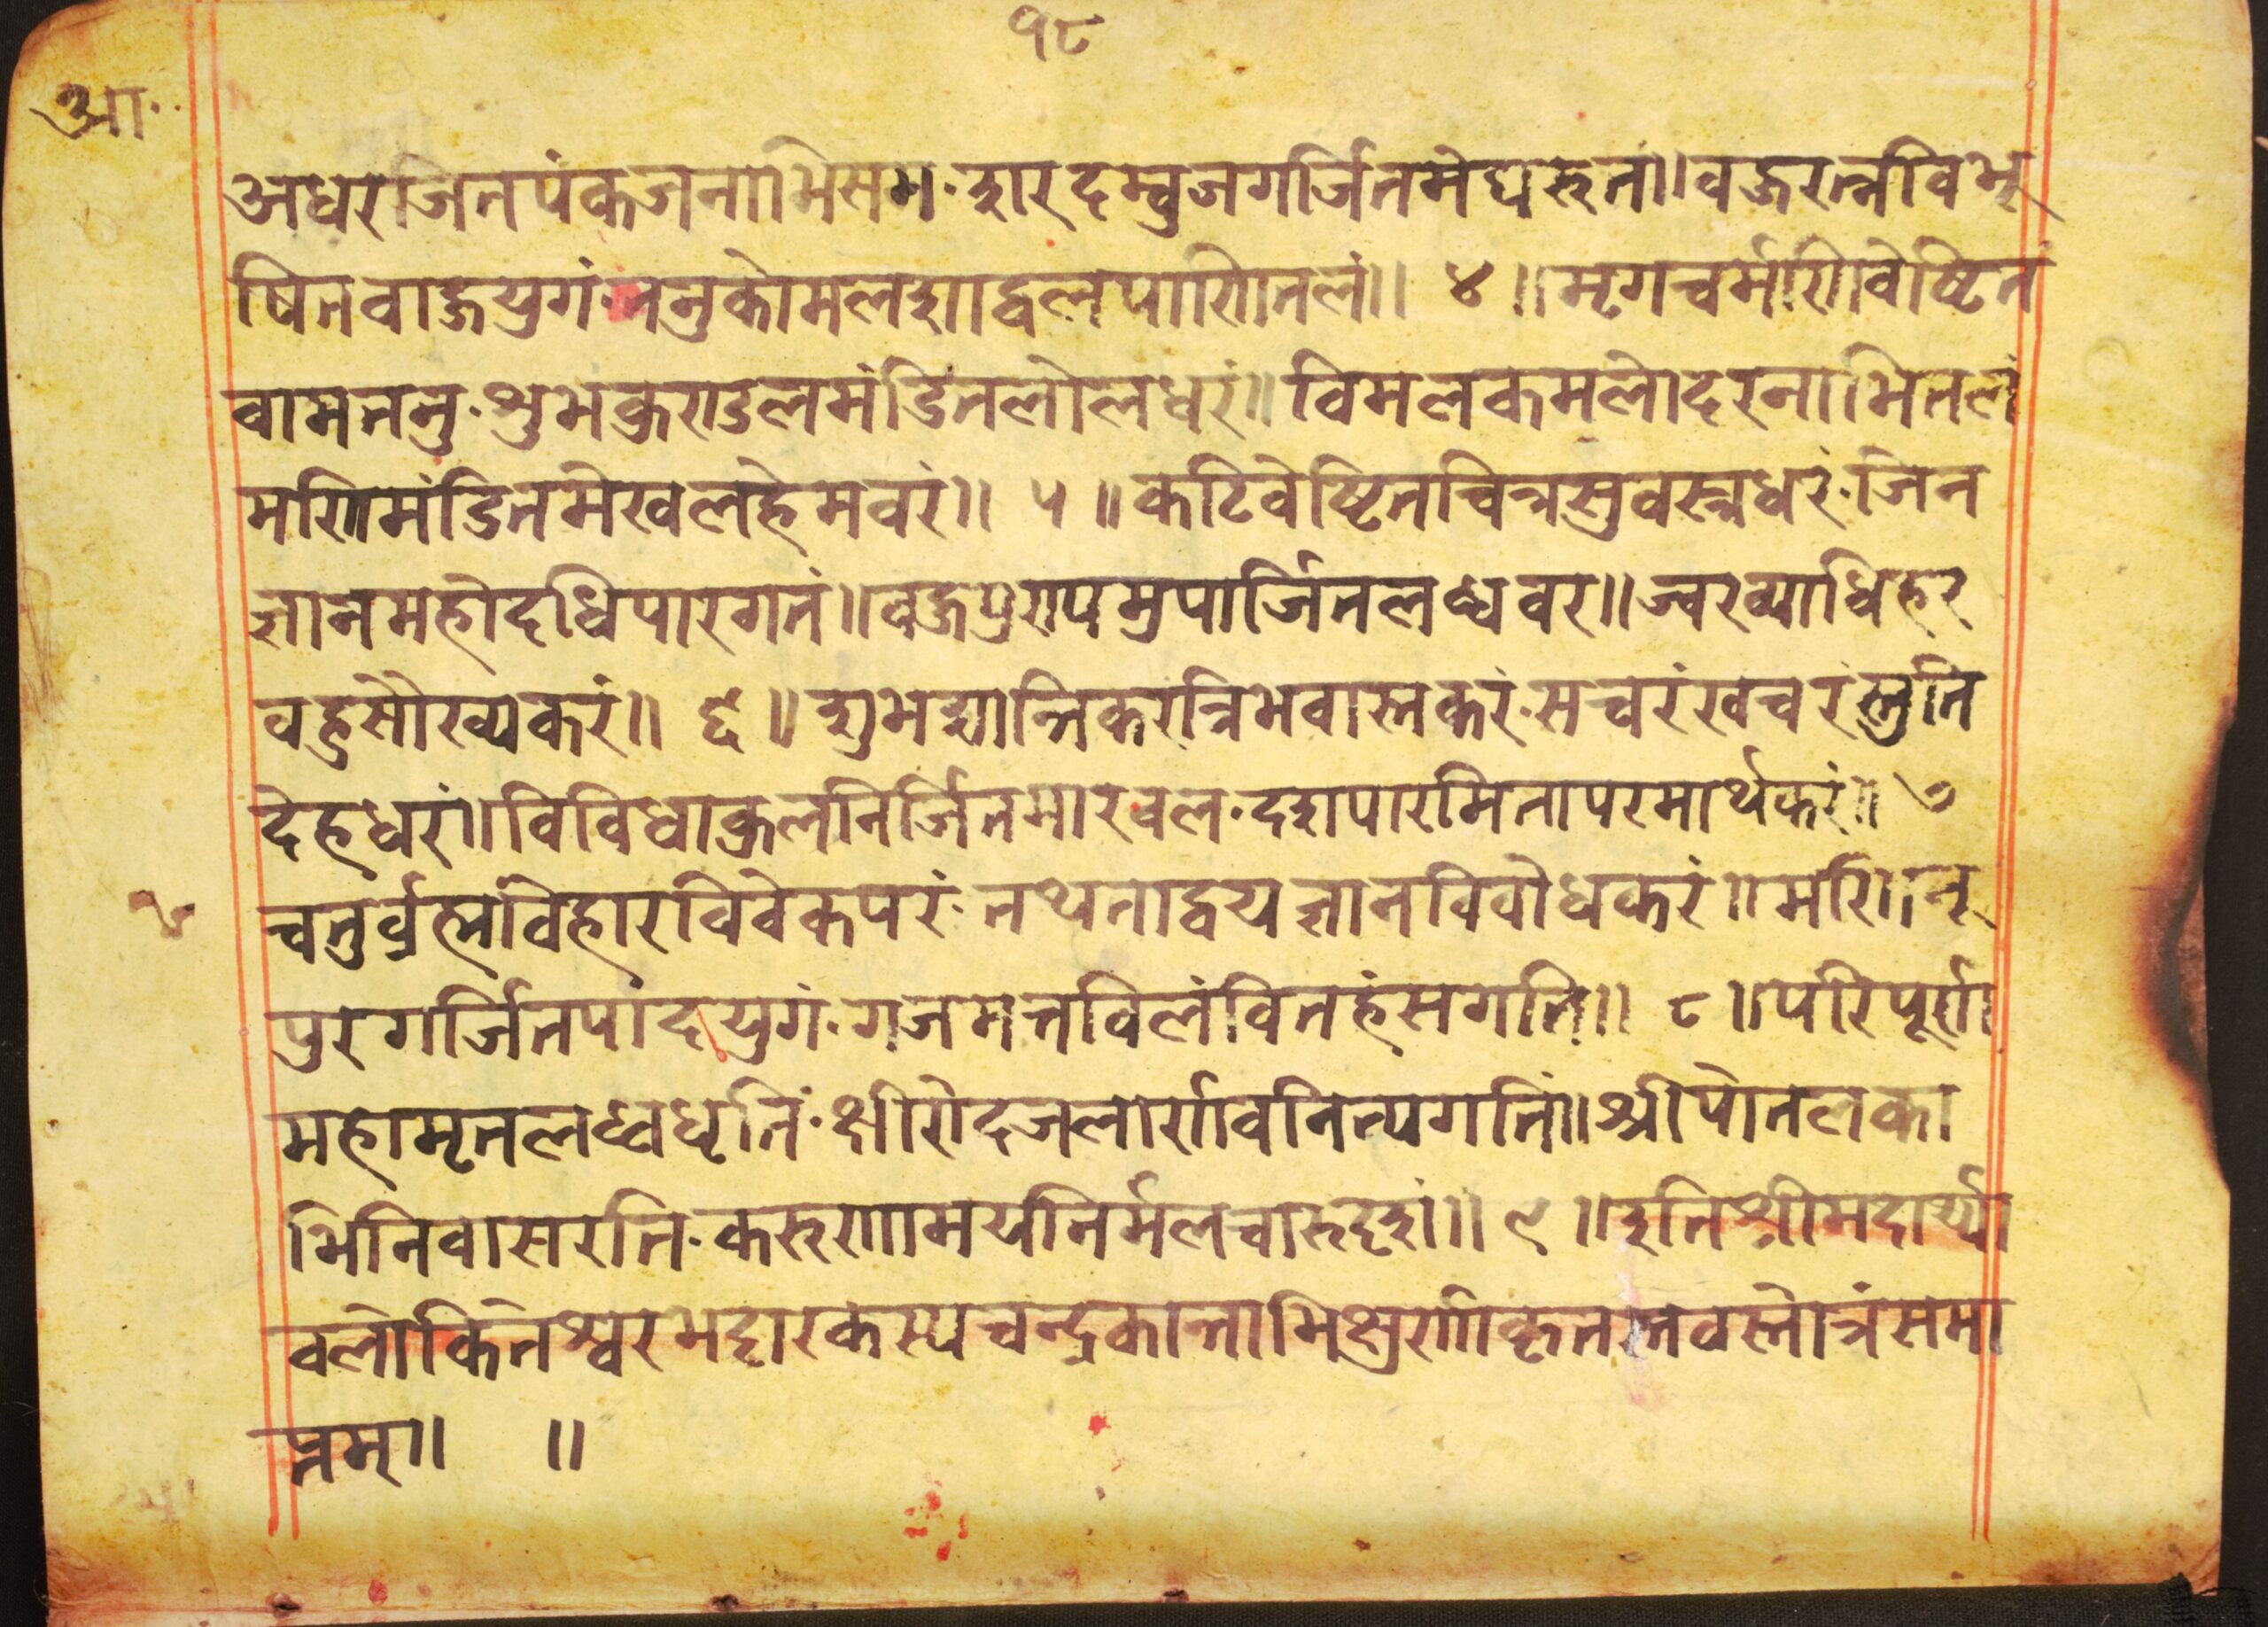 १८
आ.
अधरजितपंकजनाभिसम. शरदम्बुजगर्जितमेघरुतं॥वज्ररत्नविभू
षितवाज्जयुगं. तनुकोमलशाद्वलपाणितलं॥ ४ ॥मृगचर्मणिवेष्टित
वामतनु. शुभकुण्डलमंडितलोलधरं॥विमलकमलोदरनाभितलं
मणिमंडितमेखलहेमवरं॥ ५ ॥कटिवेष्टितचित्रसुवस्त्रधरं. जिन
ज्ञानमहोदधिपारगतं॥वज्रपुण्यमुपार्जितलब्धवर॥ज्वरव्याधिहर
वहुसौख्यकरं॥ ६ ॥शुभशान्तिकरत्रिभवास्तकरं. सचरंखचरंस्तुति
देहधरं॥विविधाकुलनिर्जितमारवल. दशपारमितापरमार्थकरं॥ ७
चतुर्व्रह्मविहारविवेकपरं. तथताद्वयज्ञानविवोधकरं॥मणिनू
पुरगर्जितपादयुगं. गजमत्तविलंवितहंसगति॥ ८ ॥परिपूर्ण
महामृतलध्वधृतिं. क्षीरोदजलार्णवनित्यगतिं॥श्रीपोतलका
भिनिवासरति. करुणामयनिर्मलचारुदृशं॥ ९ ॥इतिश्रीमदार्य्या
वलोकितेश्वरभट्टारकस्यचन्द्रकान्ताभिक्षुणीकृतस्तवस्तोत्रंसमा
प्तम्॥ ॥